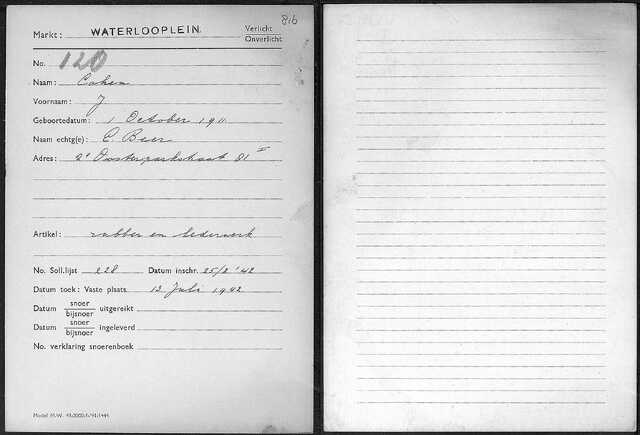 816
Markt: WATERLOOPLEIN. Verlicht
Onverlicht
No. 120
Naam: Cohen
Voornaam: J
Geboortedatum: 1 October 1911
Naam echtg(e): C. Beer
Adres: 2e Oosterparkstraat 81 I
Artikel: rubber en lederwerk
No. Soll.lijst 228 Datum inschr. 25/2 '42
Datum toek: Vaste plaats 13 Juli 1942
Datum snoer/bijsnoer uitgereikt
Datum snoer/bijsnoer ingeleverd
No. verklaring snoerenboek
Model M.W.